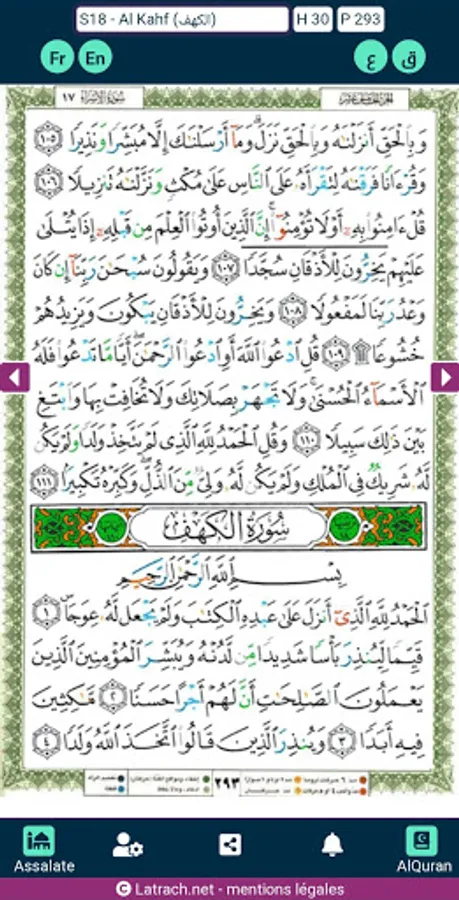 S18 - Al Kahf (الكهف)
H 30
P 293
Fr
En
ع
ق
١٧ سُورَةُ الإِسْرَاءِ
الجزء الخامس عشر
وَبِالْحَقِّ أَنزَلْنَٰهُ وَبِالْحَقِّ نَزَلَ ۗ وَمَآ أَرْسَلْنَٰكَ إِلَّا مُبَشِّرًا وَنَذِيرًا ١٠٥
وَقُرْءَانًا فَرَقْنَٰهُ لِتَقْرَأَهُۥ عَلَى النَّاسِ عَلَىٰ مُكْثٍ وَنَزَّلْنَٰهُ تَنزِيلًا ١٠٦
قُلْ ءَامِنُوا بِهِۦٓ أَوْ لَا تُؤْمِنُوٓا ۚ إِنَّ الَّذِينَ أُوتُوا الْعِلْمَ مِن قَبْلِهِۦٓ إِذَا يُتْلَىٰ
عَلَيْهِمْ يَخِرُّونَ لِلْأَذْقَانِ سُجَّدًا ١٠٧ وَيَقُولُونَ سُبْحَٰنَ رَبِّنَآ إِن كَانَ
وَعْدُ رَبِّنَا لَمَفْعُولًا ١٠٨ وَيَخِرُّونَ لِلْأَذْقَانِ يَبْكُونَ وَيَزِيدُهُمْ
خُشُوعًا ۩ ١٠٩ قُلِ ادْعُوا اللَّهَ أَوِ ادْعُوا الرَّحْمَٰنَ ۖ أَيًّا مَّا تَدْعُوا فَلَهُ
الْأَسْمَآءُ الْحُسْنَىٰ ۚ وَلَا تَجْهَرْ بِصَلَاتِكَ وَلَا تُخَافِتْ بِهَا وَابْتَغِ
بَيْنَ ذَٰلِكَ سَبِيلًا ١١٠ وَقُلِ الْحَمْدُ لِلَّهِ الَّذِى لَمْ يَتَّخِذْ وَلَدًا وَلَمْ يَكُن
لَّهُۥ شَرِيكٌ فِى الْمُلْكِ وَلَمْ يَكُن لَّهُۥ وَلِىٌّ مِّنَ الذُّلِّ ۖ وَكَبِّرْهُ تَكْبِيرًا ١١١
سُورَةُ الكَهْفِ
بِسْمِ اللَّهِ الرَّحْمَٰنِ الرَّحِيمِ
الْحَمْدُ لِلَّهِ الَّذِىٓ أَنزَلَ عَلَىٰ عَبْدِهِ الْكِتَٰبَ وَلَمْ يَجْعَل لَّهُۥ عِوَجَا ۜ ١
قَيِّمًا لِّيُنذِرَ بَأْسًا شَدِيدًا مِّن لَّدُنْهُ وَيُبَشِّرَ الْمُؤْمِنِينَ الَّذِينَ
يَعْمَلُونَ الصَّٰلِحَٰتِ أَنَّ لَهُمْ أَجْرًا حَسَنًا ٢ مَّٰكِثِينَ
فِيهِ أَبَدًا ٣ وَيُنذِرَ الَّذِينَ قَالُوا اتَّخَذَ اللَّهُ وَلَدًا ٤
٢٩٣
Assalate
AlQuran
© Latrach.net - mentions légales